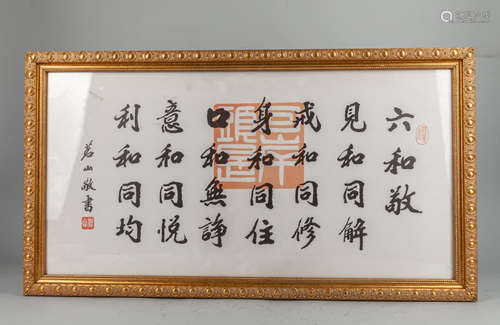 六和敬
見和同解
戒和同修
身和同住
口和無諍
意和同悦
利和同均
茗山敬書